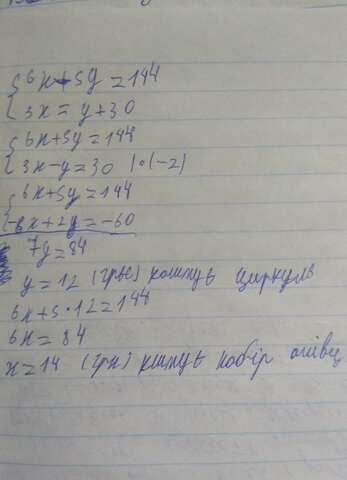 {6x+5y=144
{3x=y+30
{6x+5y=144
{3x-y=30 |·(-2)
{6x+5y=144
{-6x+2y=-60
7y=84
y=12 (грн) коштує циркуль
6x+5·12=144
6x=84
x=14 (грн) коштує набір олівц